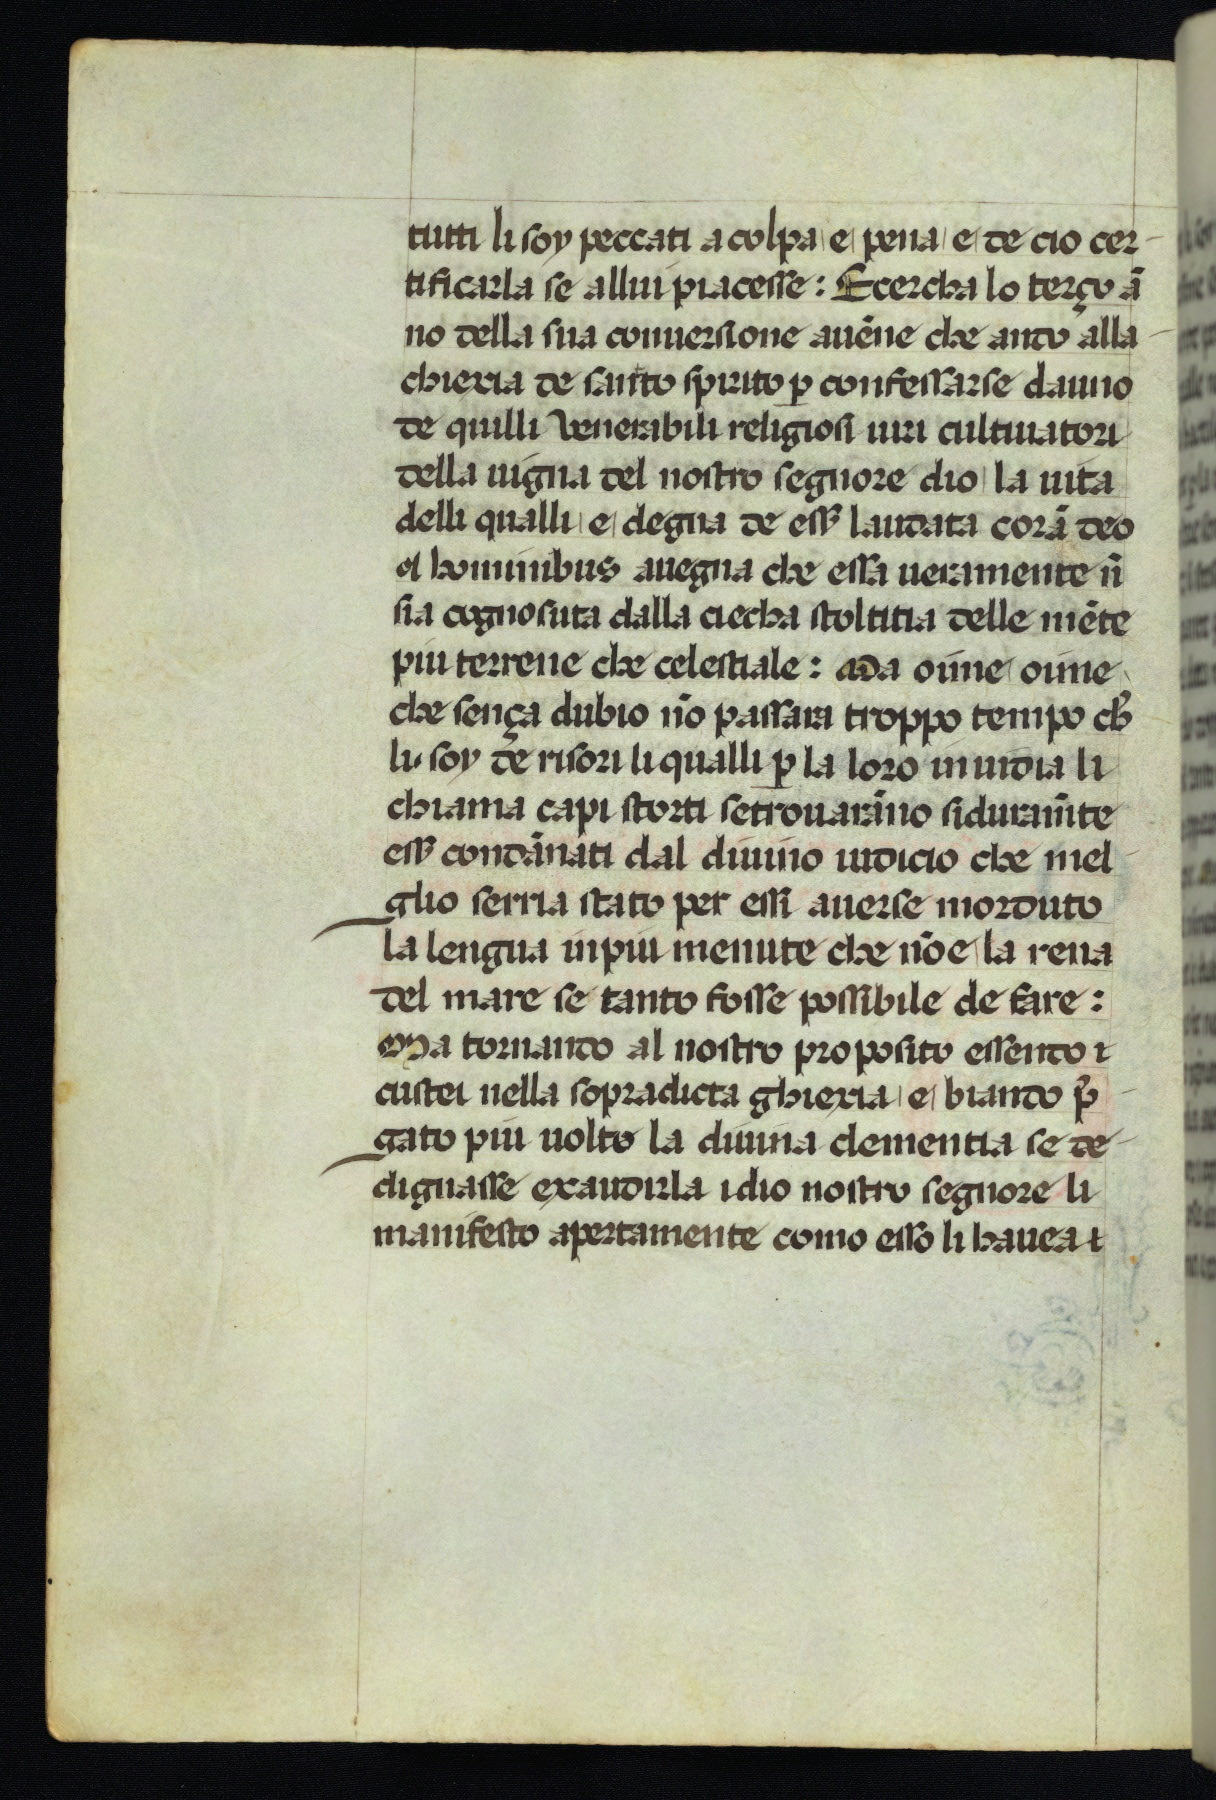 tutti li soy peccati a colpa e pena e de cio cer-
tificarla se allui piacesse : E cercha lo terço ā
no della sua conversione avēne che ando alla
chiexia de santo spirito p̱ confessarse da uno
de quilli venerabili religiosi viri cultivatori
della vigna del nostro segnore dio la vita
delli qualli e degna de ess̄ laudata corā deo
et hominibus avegna che essa veramente n̄
sia cognosuta dalla ciecha stoltitia delle mēte
piu terrene che celestiale : Ma oime oime
che sença dubio nō passara troppo tempo ch̄
li soy de risori li qualli p̱ la loro invidia li
chiama capi storti se trovarāno si duram̄te
ess̄ condānati dal divino iudicio che mel
glio serria stato per essi averse morduto
la lengua in piu menute che nōe la rena
del mare se tanto fosse possibile de fare :
Ma tornando al nostro proposito essendo
custei nella sopradicta ghiexia e biando p̄
gato piu volto la divina clementia se de-
dignasse exaudirla idio nostro segnore li
manifesto apertamente como esso li havea